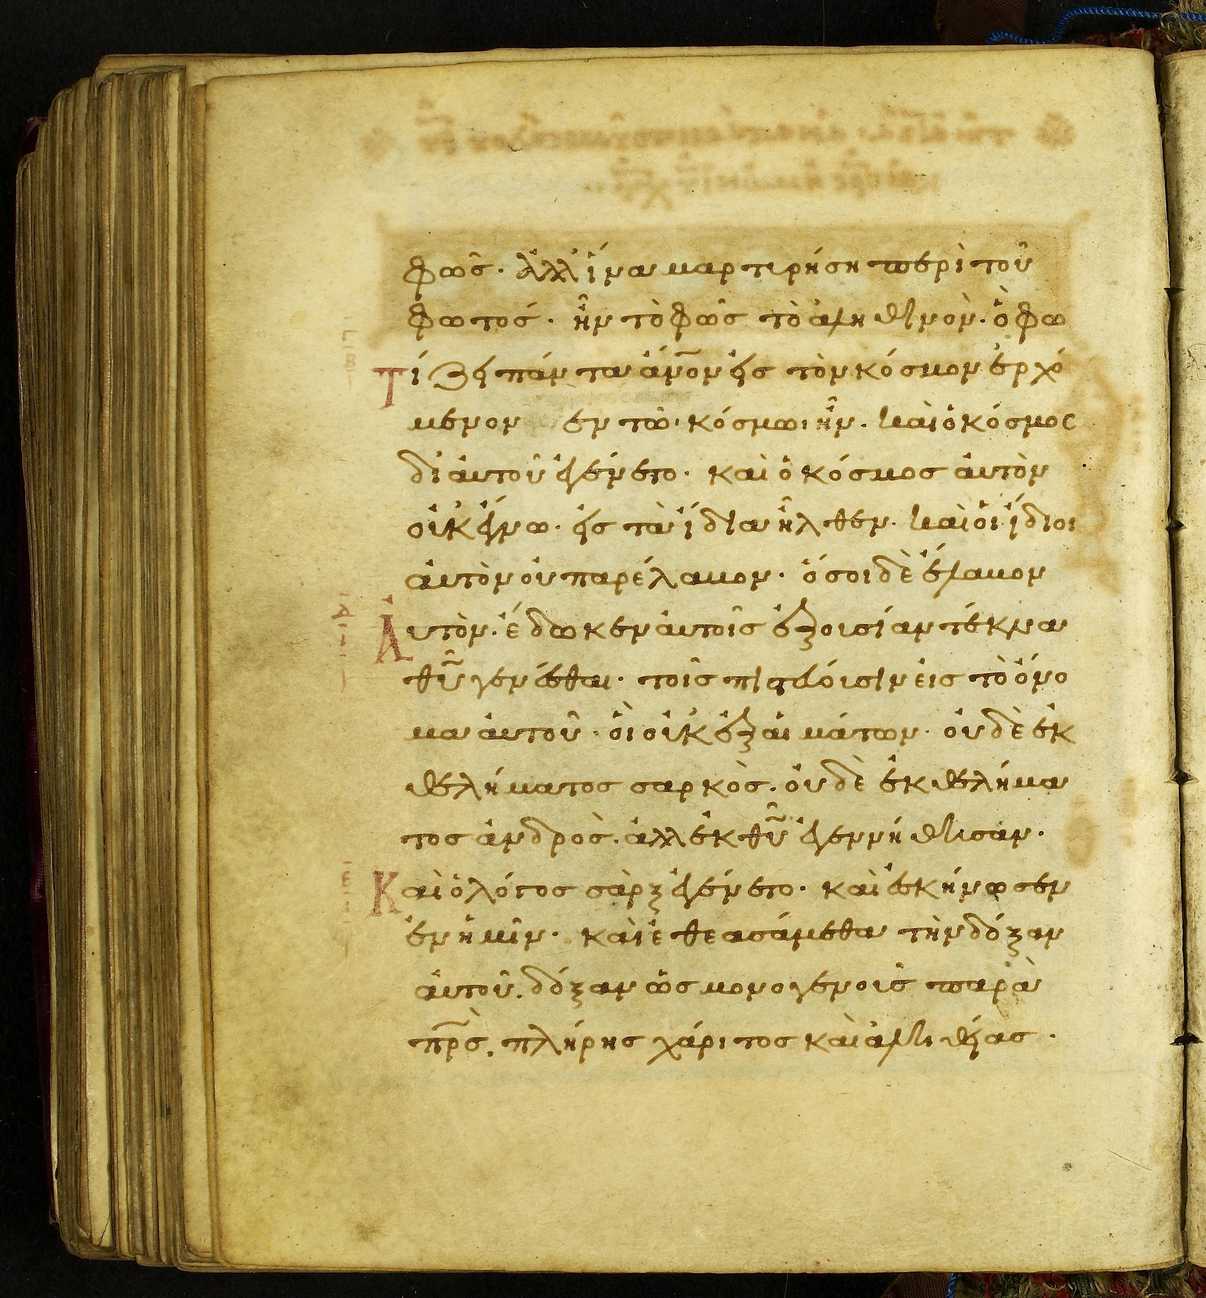 φῶς· ἀλλ ἵνα μαρτιρήση περὶ τοῦ
φωτός· ἦν τὸ φῶς τὸ ἀληθινὸν· ὃ φω
τίζει πάντα ἄνον εἰς τὸν κόσμον ἐρχό
μενον ἐν τῶ κόσμω ἦν· καὶ ὁ κόσμος
δι αὐτοῦ ἐγένετο· καὶ ὁ κόσμος αὐτὸν
οὐκ ἔγνω· εἰς τὰ ἴδια ἦλθεν· καὶ οἱ ἴδιοι
αὐτὸν οὐ παρέλαμον· ὅσοι δὲ ἔλαμον
αυτὸν· ἔδωκεν αὐτοῖς ἐξουσίαν τέκνα
θῦ γενέσθαι· τοῖς πιστεύουσιν εἰς τὸ ὄνο
μα αὐτοῦ· οἳ οὐκ ἐξ αἱμάτων· οὐδὲ ἐκ
θελήματος σαρκὸς· οὐδὲ ἐκ θελήμα
τος ἀνδρὸς· ἀλλ ἐκ θῦ ἐγεννήθισαν·
Καὶ ὁ λόγος σὰρξ ἐγένετο· καὶ ἐσκήνωσεν
ἐν ἡμῖν· καὶ ἐθεασάμεθα τὴν δόξαν
αὐτοῦ· δόξαν ὡς μονογενοῦς παρὰ
πρς· πλήρης χάριτος καὶ ἀληθείας·